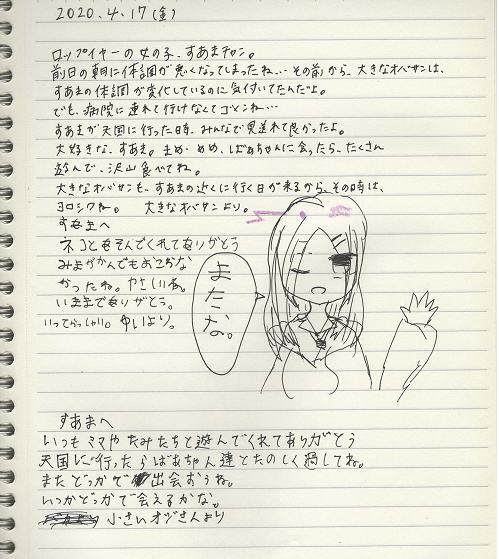 2020.4.17(金)
ロップイヤーの女の子、すあまチャン。
前日の朝に体調が悪くなってしまったね…その前から、大きなオバサンは、
すあまの体調が変化しているのに気付いてたんだよ。
でも、病院に連れて行けなくてゴメンね…
すあまが天国に行った時、みんなで見送れて良かったよ。
大好きな、すあま。まめ、めめ、ばぁちゃんに会ったら、たくさん
遊んで、沢山食べてね。
大きなオバサンも、すあまの近くに行く日が来るから、その時は、
ヨロシクね。 大きなオバサンより。
すあまへ
ネコとあそんでくれてありがとう
みよがかんでもおこらな
かったね。やさしいね。
いままでありがとう。
いってらっしゃい。ゆいより。
またな。
すあまへ
いつもママやたみたちと遊んでくれてありがとう
天国に行ったらばあちゃん達とたのしく過してね。
またどっかで出会おうね。
いつかどっかで会えるかな。
小さいオヅさんより